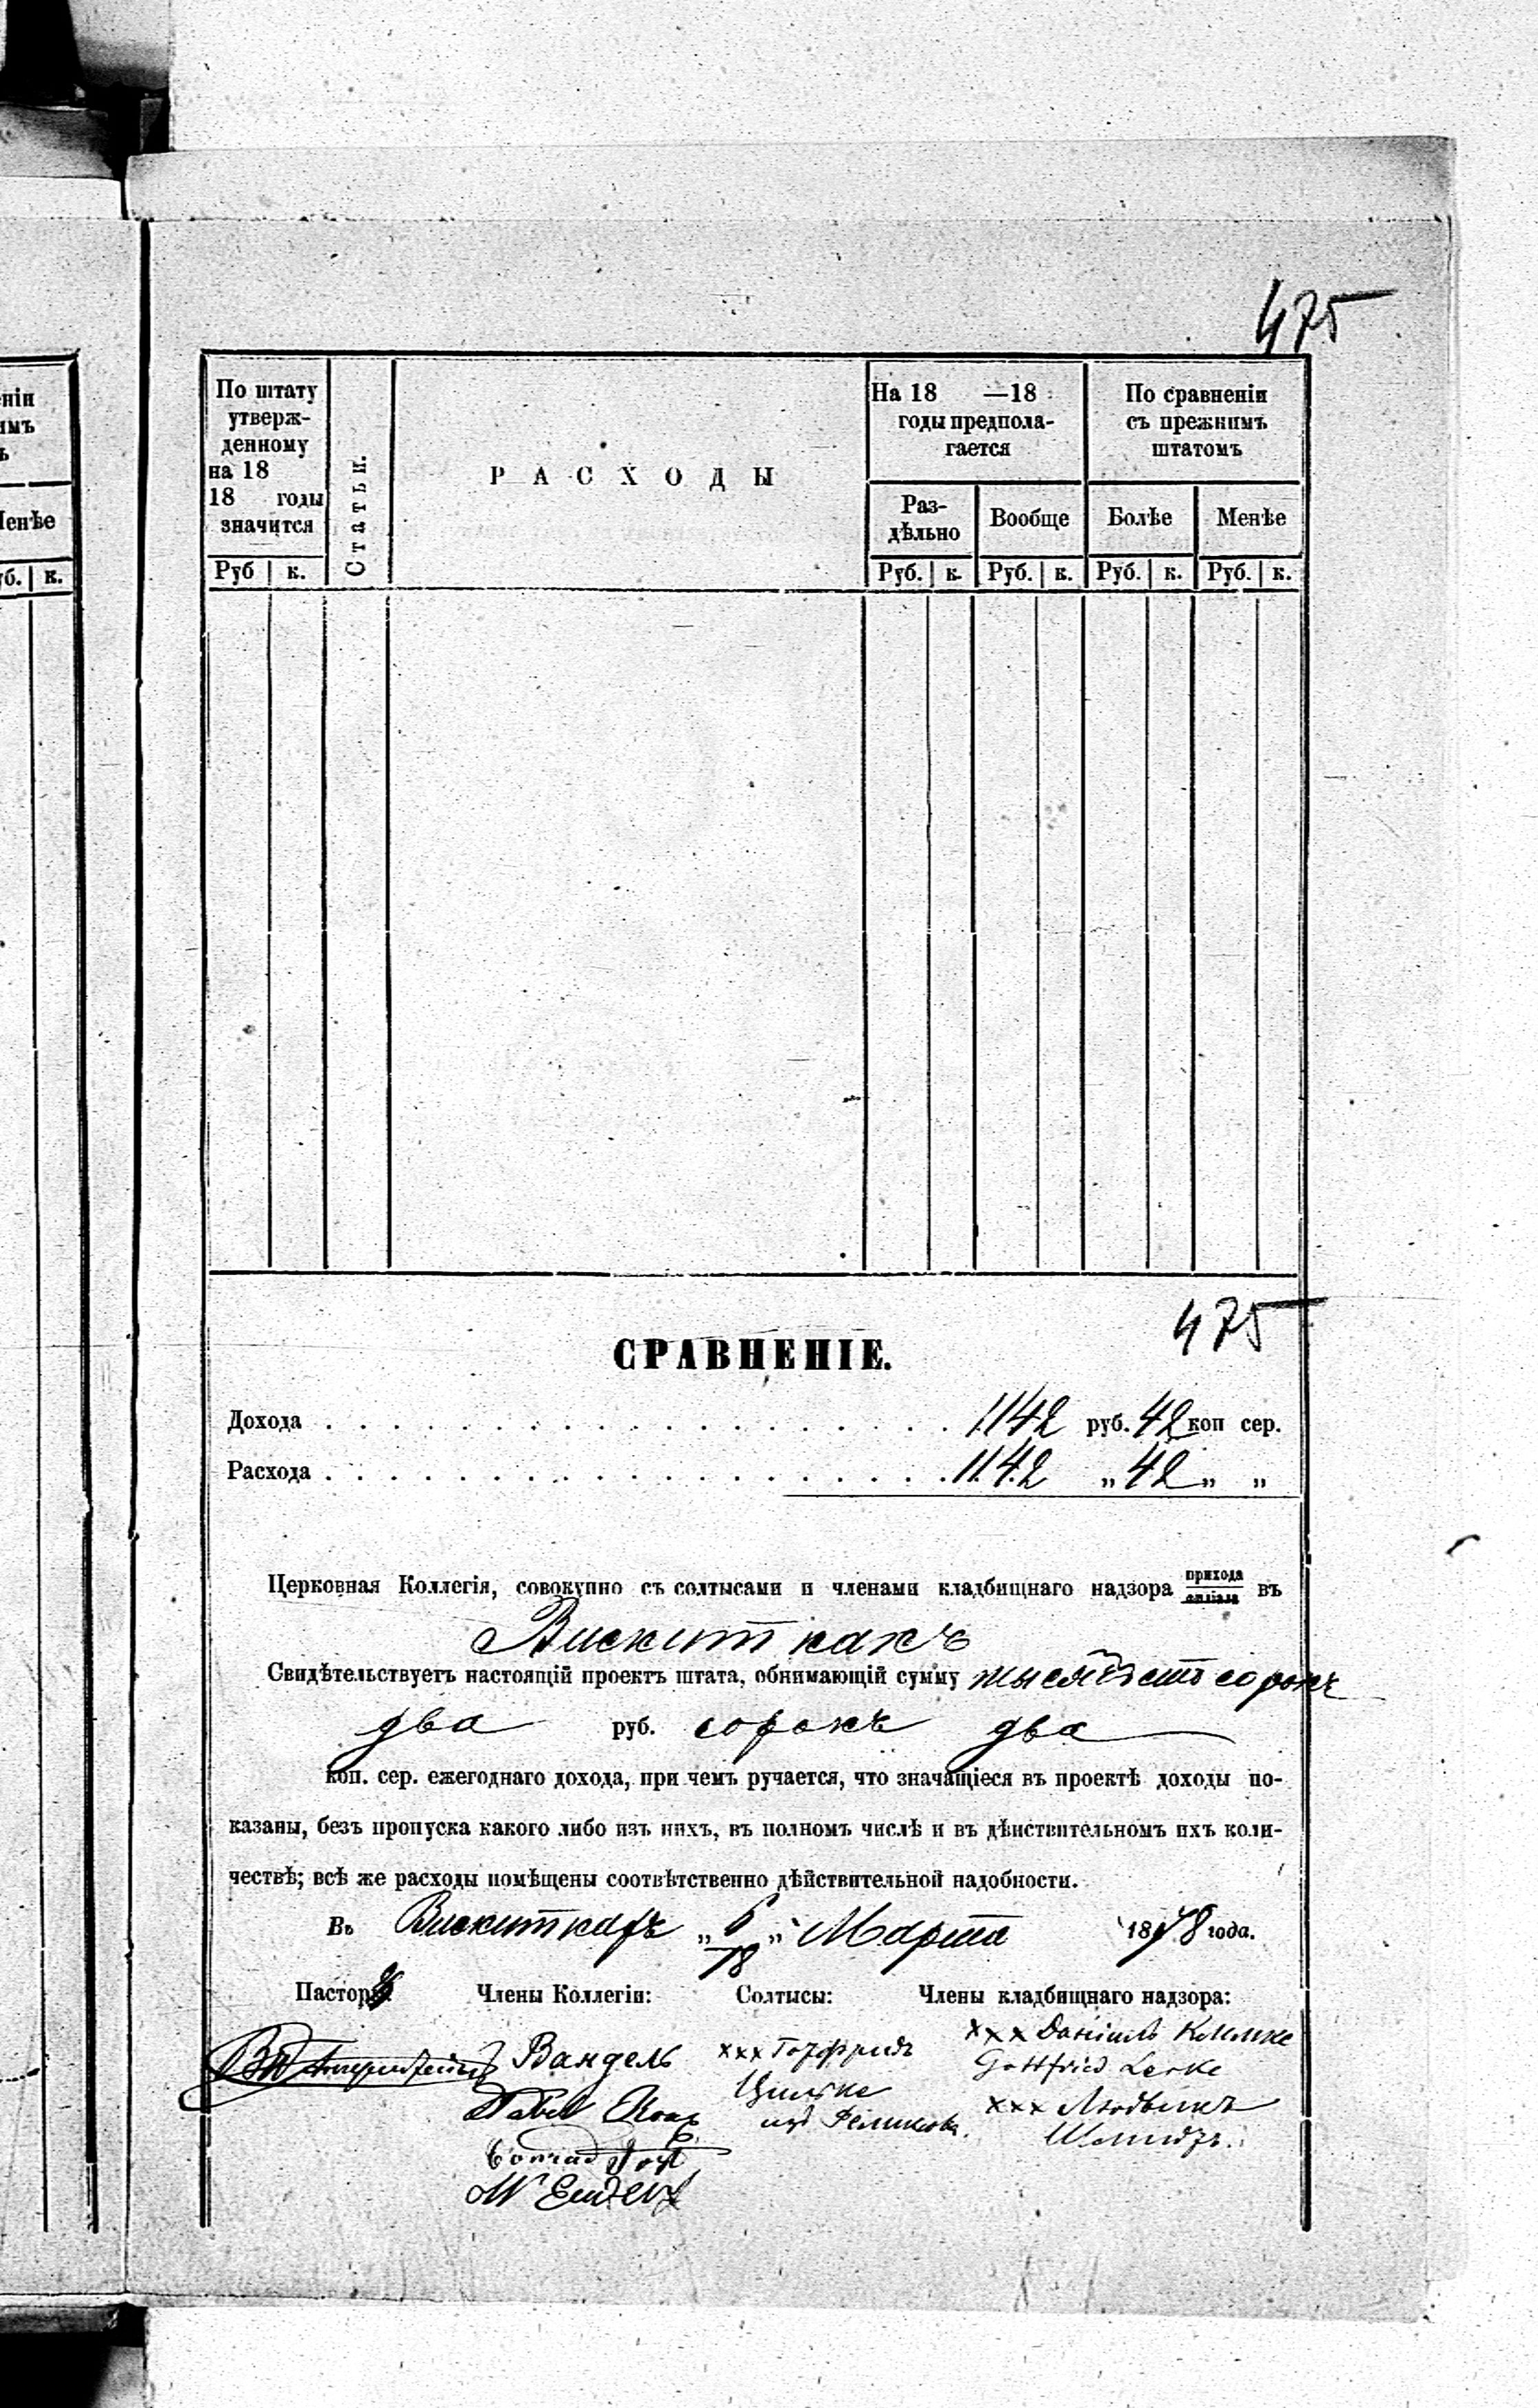 475
ніи
имъ
ъ
Менѣе
уб. к.
По штату
утверж-
денному
на 18
18 годы
значится
Руб к.
Статьи.
РАСХОДЫ
На 18 —18
годы предпола-
гается
Раз-
дѣльно
Вообще
Руб. к. Руб. к.
По сравненіи
съ прежнимъ
штатомъ
Болѣе Менѣе
Руб. к. Руб. к.
475
СРАВНЕНІЕ.
Дохода . . . . . . . . . . . . . . . . . 1142 руб. 42 коп сер.
Расхода . . . . . . . . . . . . . . . . . 1142 „ 42 „ „
Церковная Коллегія, совокупно съ солтысами и членами кладбищнаго надзора прихода филіала въ
Вискиткахъ
Свидѣтельствуетъ настоящій проектъ штата, обнимающій сумму тысяча сто сорокъ
два руб. сорокъ два
коп. сер. ежегоднаго дохода, при чемъ ручается, что значащіеся въ проектѣ доходы по-
казаны, безъ пропуска какого либо изъ нихъ, въ полномъ числѣ и въ дѣйствительномъ ихъ коли-
чествѣ; всѣ же расходы помѣщены соотвѣтственно дѣйствительной надобности.
Въ Вискиткахъ „6/18„ Марта 1878 года.
Пасторъ Члены Коллегіи: Солтысы: Члены кладбищнаго надзора:
Вандель
xxx Готфридъ
xxx Даніилъ
Gottfried Lerke
xxx Людвикъ
Шмидтъ.
Conrad